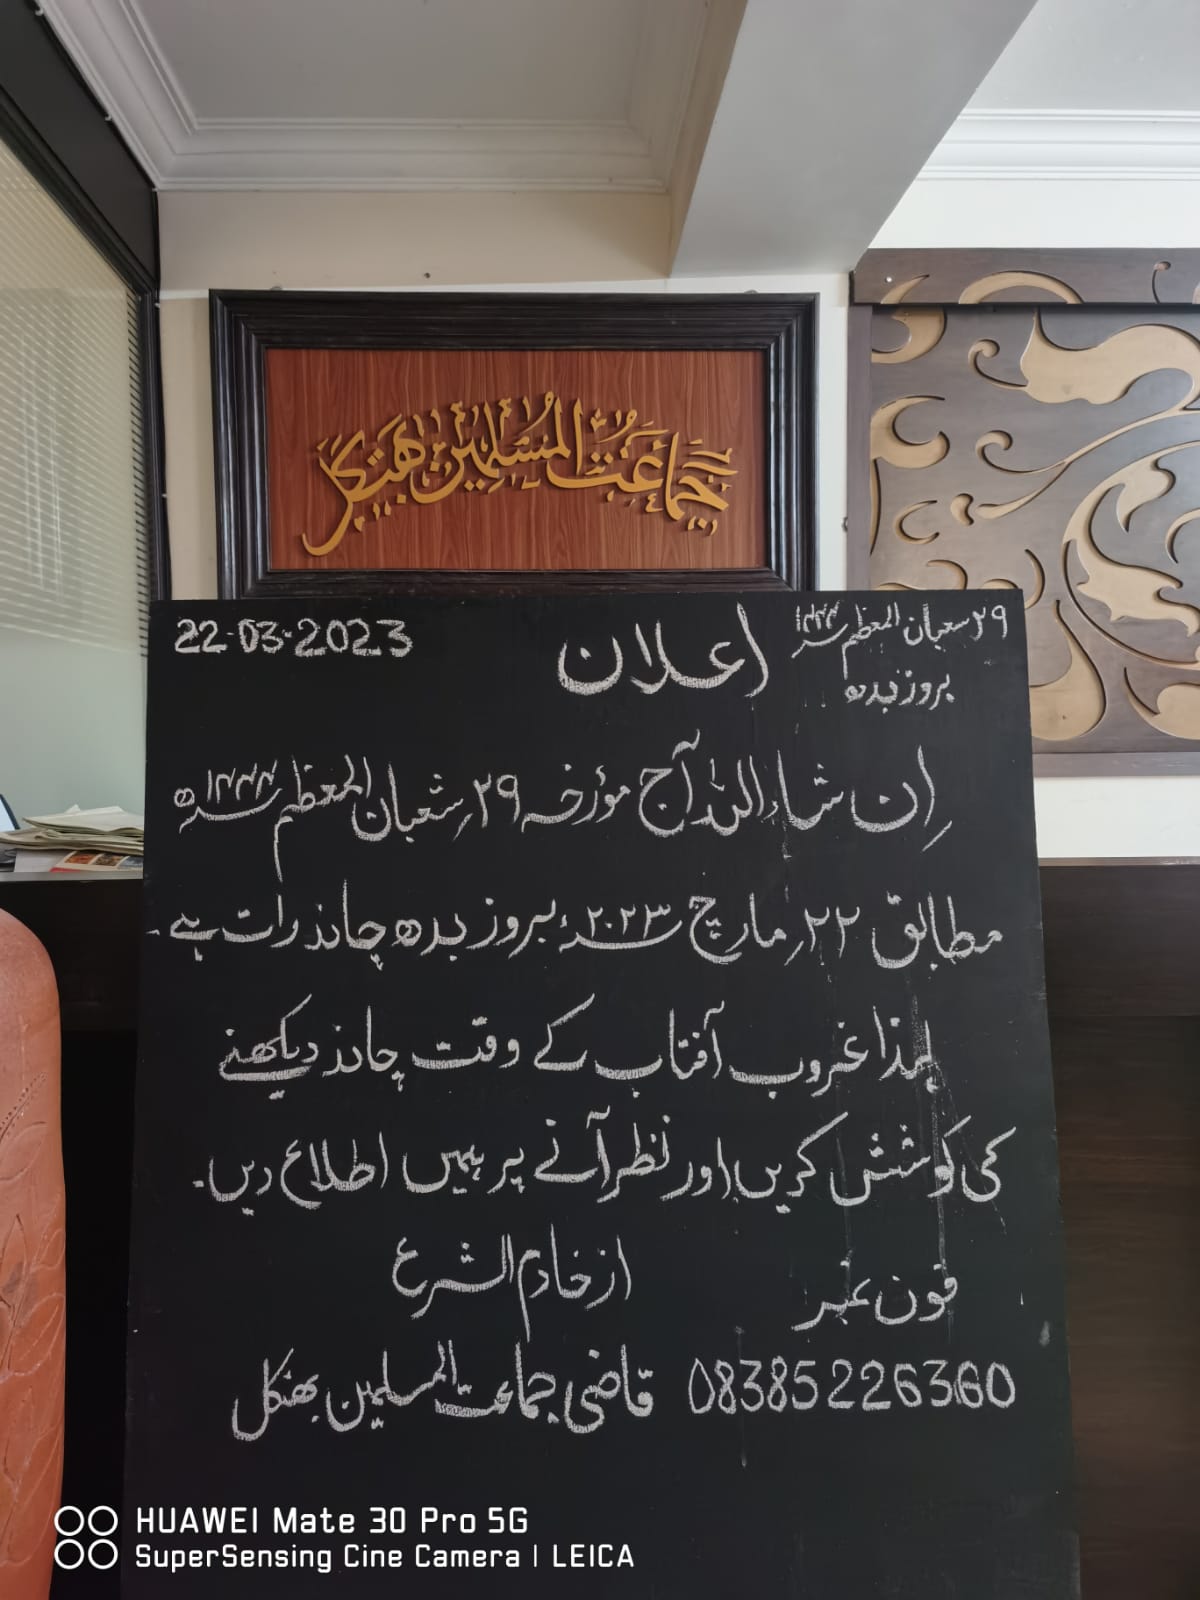 جماعت المسلمین بھٹکل
22-03-2023
اعلان
۲۹ شعبان المعظم ۱۴۴۴
بروز بدھ
اِن شاء اللہ آج مؤرخہ ۲۹؍شعبان المعظم ۱۴۴۴ھ
مطابق ۲۲؍مارچ ۲۰۲۳ء بروز بدھ چاند رات ہے۔
لہذا غروب آفتاب کے وقت چاند دیکھنے
کی کوشش کریں اور نظر آنے پر ہمیں اطلاع دیں۔
فون نمبر
از خادم الشرع
08385226360
قاضی جماعت المسلمین بھٹکل
HUAWEI Mate 30 Pro 5G
SuperSensing Cine Camera | LEICA